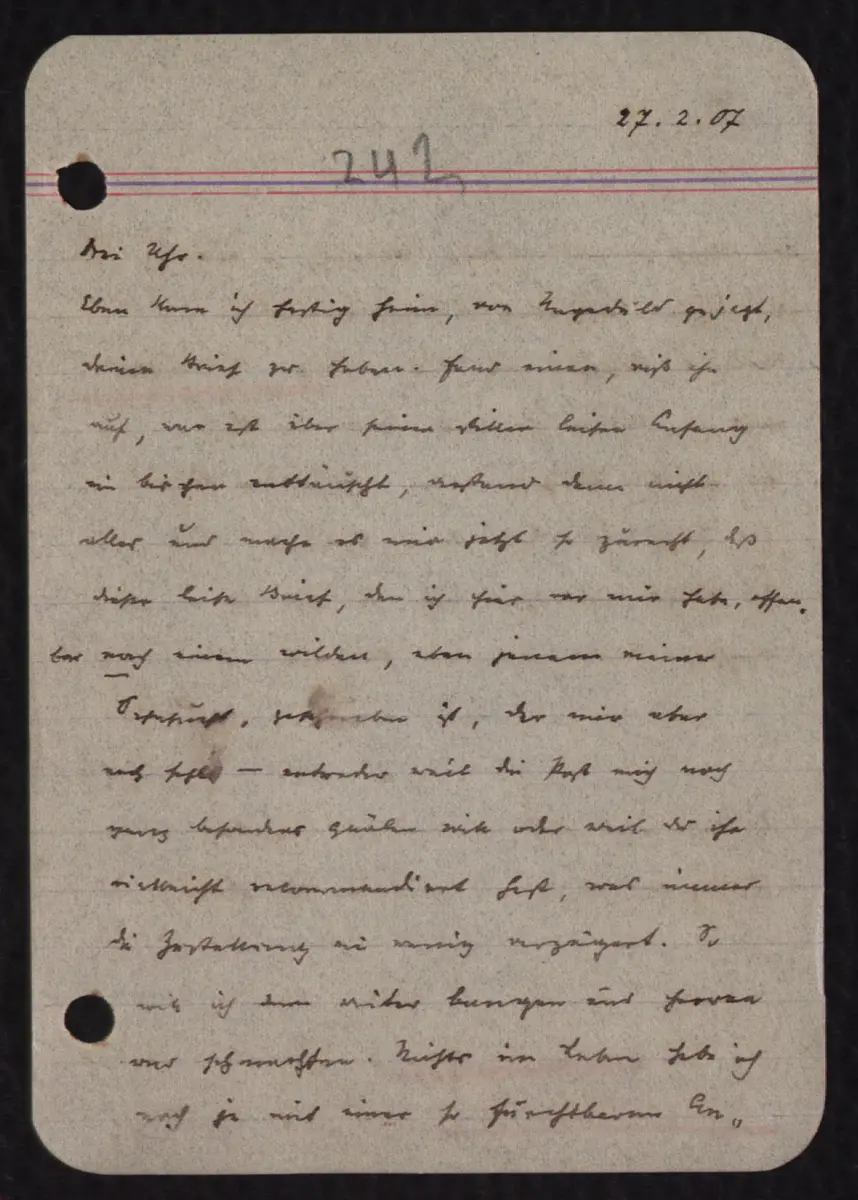 27. 2. 07
242
Drei Uhr.
Eben kam ich hastig heim, von Ungeduld gejagt,
deinen Brief zu haben. Fand einen, riß ihn
auf, war erst über seinen stillen leisen Anfang
ein bischen enttäuscht, verstand dann nicht
alles und mache es mir jetzt so zurecht, daß
dieser leise Brief, den ich hier vor mir habe, offen-
bar nach einem wilden, eben jenem meiner
Sehnsucht, geschrieben ist, der mir aber
noch fehlt — entweder weil die Post mich noch
ganz besonders quälen will oder weil du ihn
vielleicht recommandiert hast, was immer
die Zustellung ein wenig verzögert. So
will ich denn weiter bangen und harren
und schmachten. Nichts im Leben habe ich
noch je mit einer so furchtbaren An-